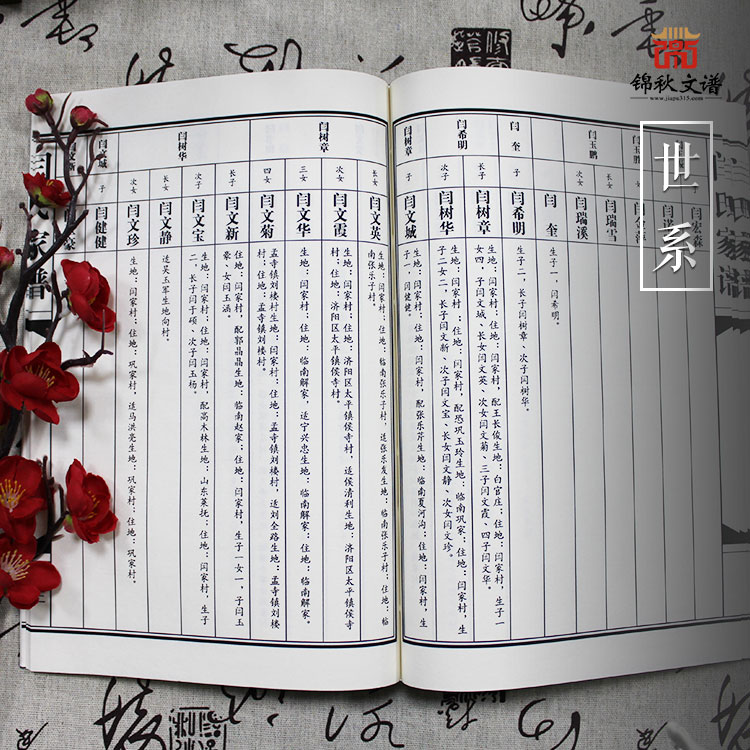 锦秋文谱
www.jiapu315.com
世系
闫玉鹏
女
闫瑞雪
次女
闫瑞溪
闫奎
生子一，闫希明。
闫奎
子
闫希明
生子二，长子闫树章、次子闫树华。
闫希明
长子
闫树章
生地：闫家村；住地：闫家村，配王长俊生地：白官庄；住地：闫家村，生子一
女四，子闫文城、长女闫文英、次女闫文菊、三子闫文霞、四子闫文华。
次子
闫树华
生地：闫家村；住地：闫家村，配恐巩玉玲生地：临南巩家；住地：闫家村，生
子二女二，长子闫文新、次子闫文宝、长女闫文静、次女闫文珍。
闫树章
子
闫文城
生地：闫家村；住地：闫家村，配张乐芹生地：临南夏河沟；住地：闫家村，生
子一，闫健健。
闫树章
长女
闫文英
生地：闫家村；住地：临南张乐子村，适张乐友生地：临南张乐子村；住地：临
南张乐子村。
次女
闫文霞
生地：闫家村；住地：济阳区太平镇侯寺村，适侯清利生地：济阳区太平镇侯寺
村；住地：济阳区太平镇侯寺村。
三女
闫文华
生地：闫家村；住地：临南解家，适宁兴忠生地：临南解家；住地：临南解家。
四女
闫文菊
孟寺镇刘楼村生地：闫家村；住地：孟寺镇刘楼村，适刘全路生地：孟寺镇刘楼
村；住地：孟寺镇刘楼村。
闫树华
长子
闫文新
住地：闫家村，配郭晶晶生地：临南赵家；住地：闫家村，生子一女一，子闫玉
豪、女闫玉涵。
次子
闫文宝
生地：闫家村；住地：闫家村，配高木林生地：山东莱抚；住地：闫家村，生子
二，长子闫于硕、次子闫玉杨。
长女
闫文静
适吴玉军生地向村。
次女
闫文珍
生地：闫家村；住地：巩家村，适马洪亮生地：巩家村；住地：巩家村。
闫文城
子
闫健健